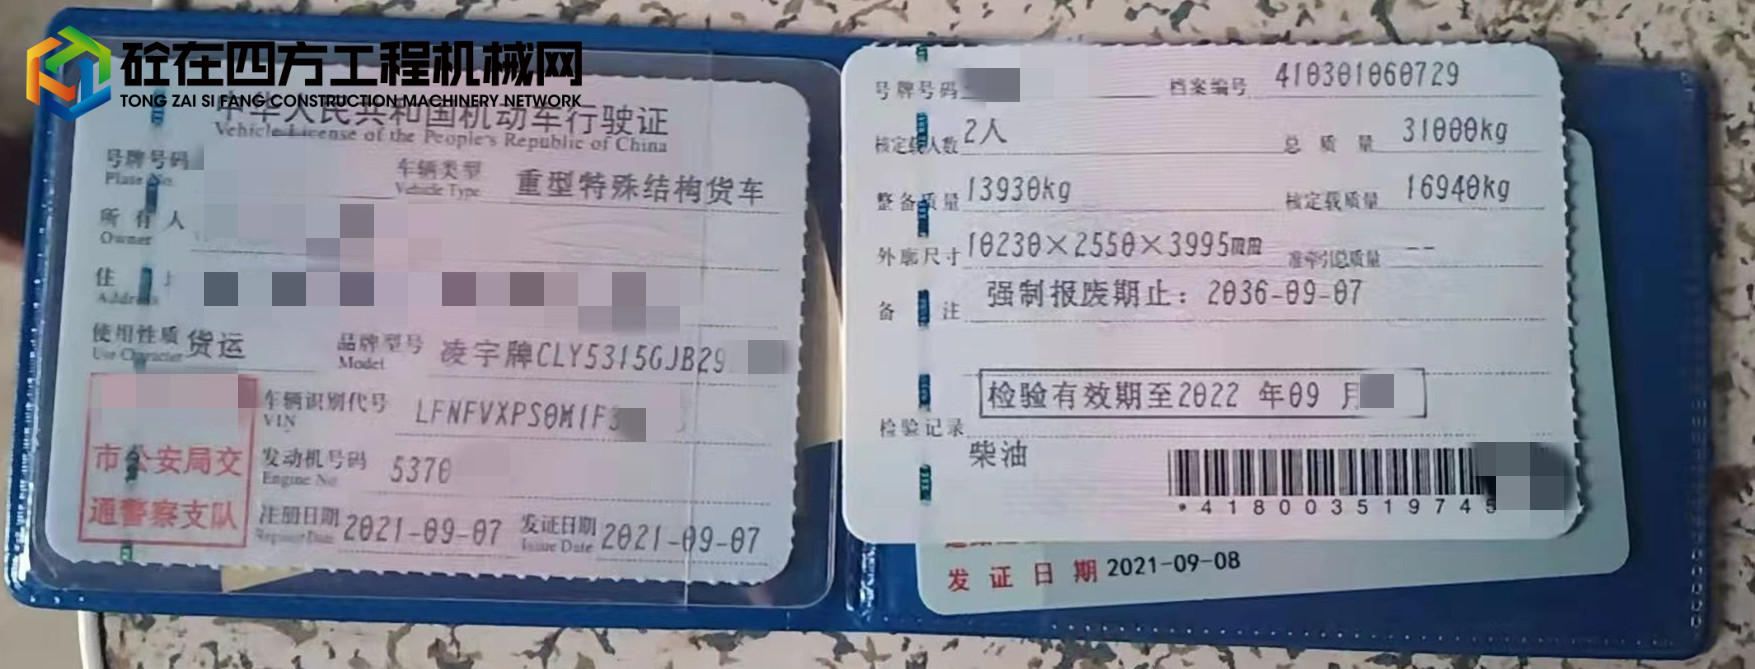 砼在四方工程机械网
TONG ZAI SI FANG CONSTRUCTION MACHINERY NETWORK
中华人民共和国机动车行驶证
Vehicle License of the People's Republic of China
号牌号码
Plate No.
车辆类型 重型特殊结构货车
Vehicle Type
所有人
Owner
住
Address
使用性质 货运
Use Character
品牌型号 凌宇牌CLY5315GJB29
Model
车辆识别代号 LFNFVXPS0M1F3
VIN
市公安局交
通警察支队
发动机号码 5370
Engine No.
注册日期 2021-09-07
Register Date
发证日期 2021-09-07
Issue Date
号牌号码
档案编号 410301060729
核定载人数 2人
总质量 31000kg
整备质量 13930kg
核定载质量 16940kg
外廓尺寸 10230×2550×3995mm
准牵引总质量 --
备注 强制报废期止：2036-09-07
检验有效期至2022 年09 月
检验记录
柴油
*418003519745
发证日期 2021-09-08